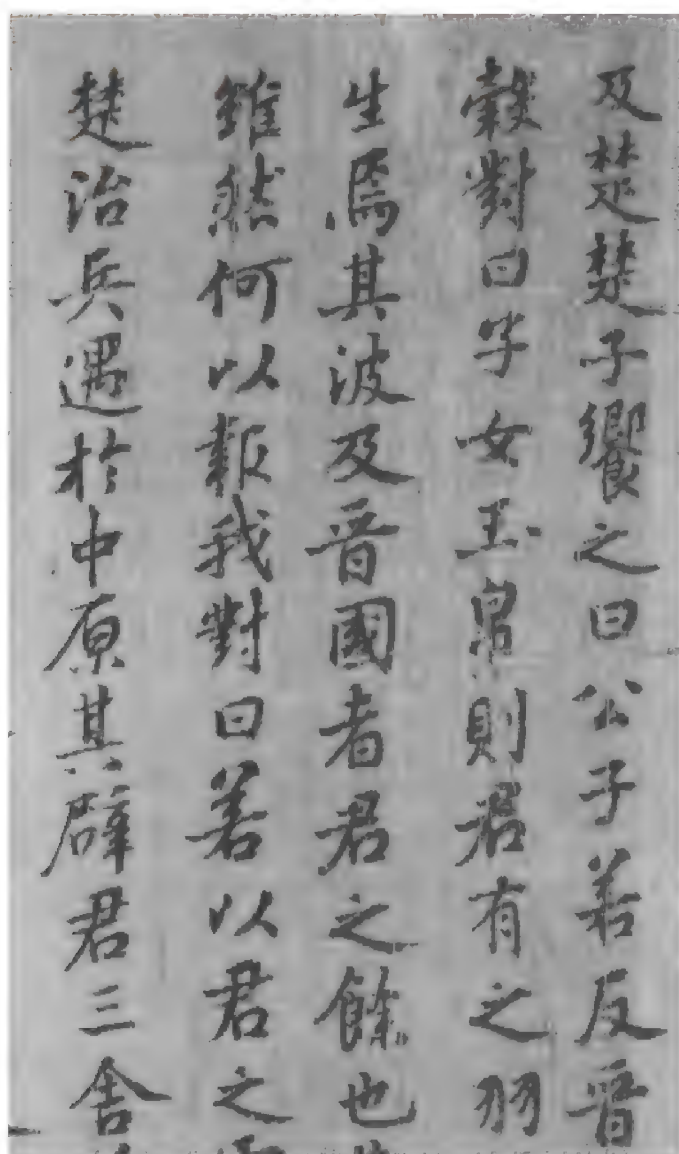 及楚楚子饗之曰公子若反晋
穀對曰子女玉帛則君有之羽
生焉其波及晋國者君之餘也
雖然何以報我對曰若以君之
楚治兵遇於中原其辟君三舍